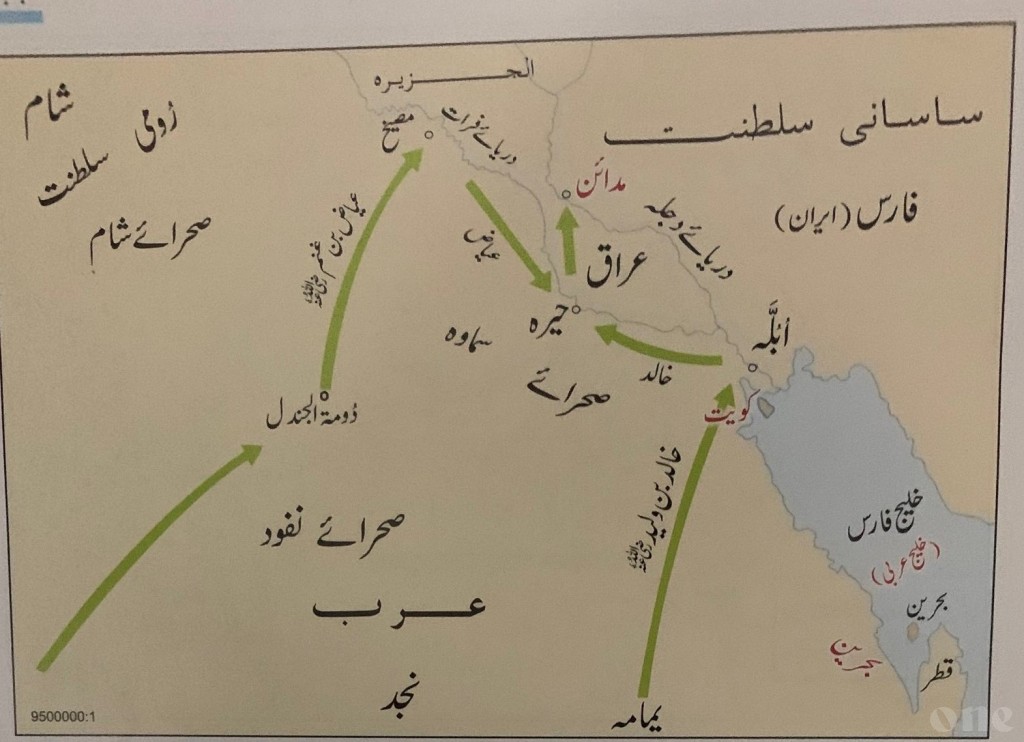 الجزیرہ
شام
رُومی
سلطنت
صحرائے شام
مصیخ
دریائے فرات
ساسانی سلطنت
فارس (ایران)
مدائن
دریائے دجلہ
عراق
عیاض بن غنم رضی اللہ عنہ
عیاض
حیرہ
سماوہ
صحرائے
خالد
اُبُلَّہ
کویت
دُومۃ الجندل
خالد بن ولید رضی اللہ عنہ
صحرائے نفود
عرب
نجد
یمامہ
خلیج فارس
(خلیج عربی)
بحرین
بحرین
قطر
9500000:1
one